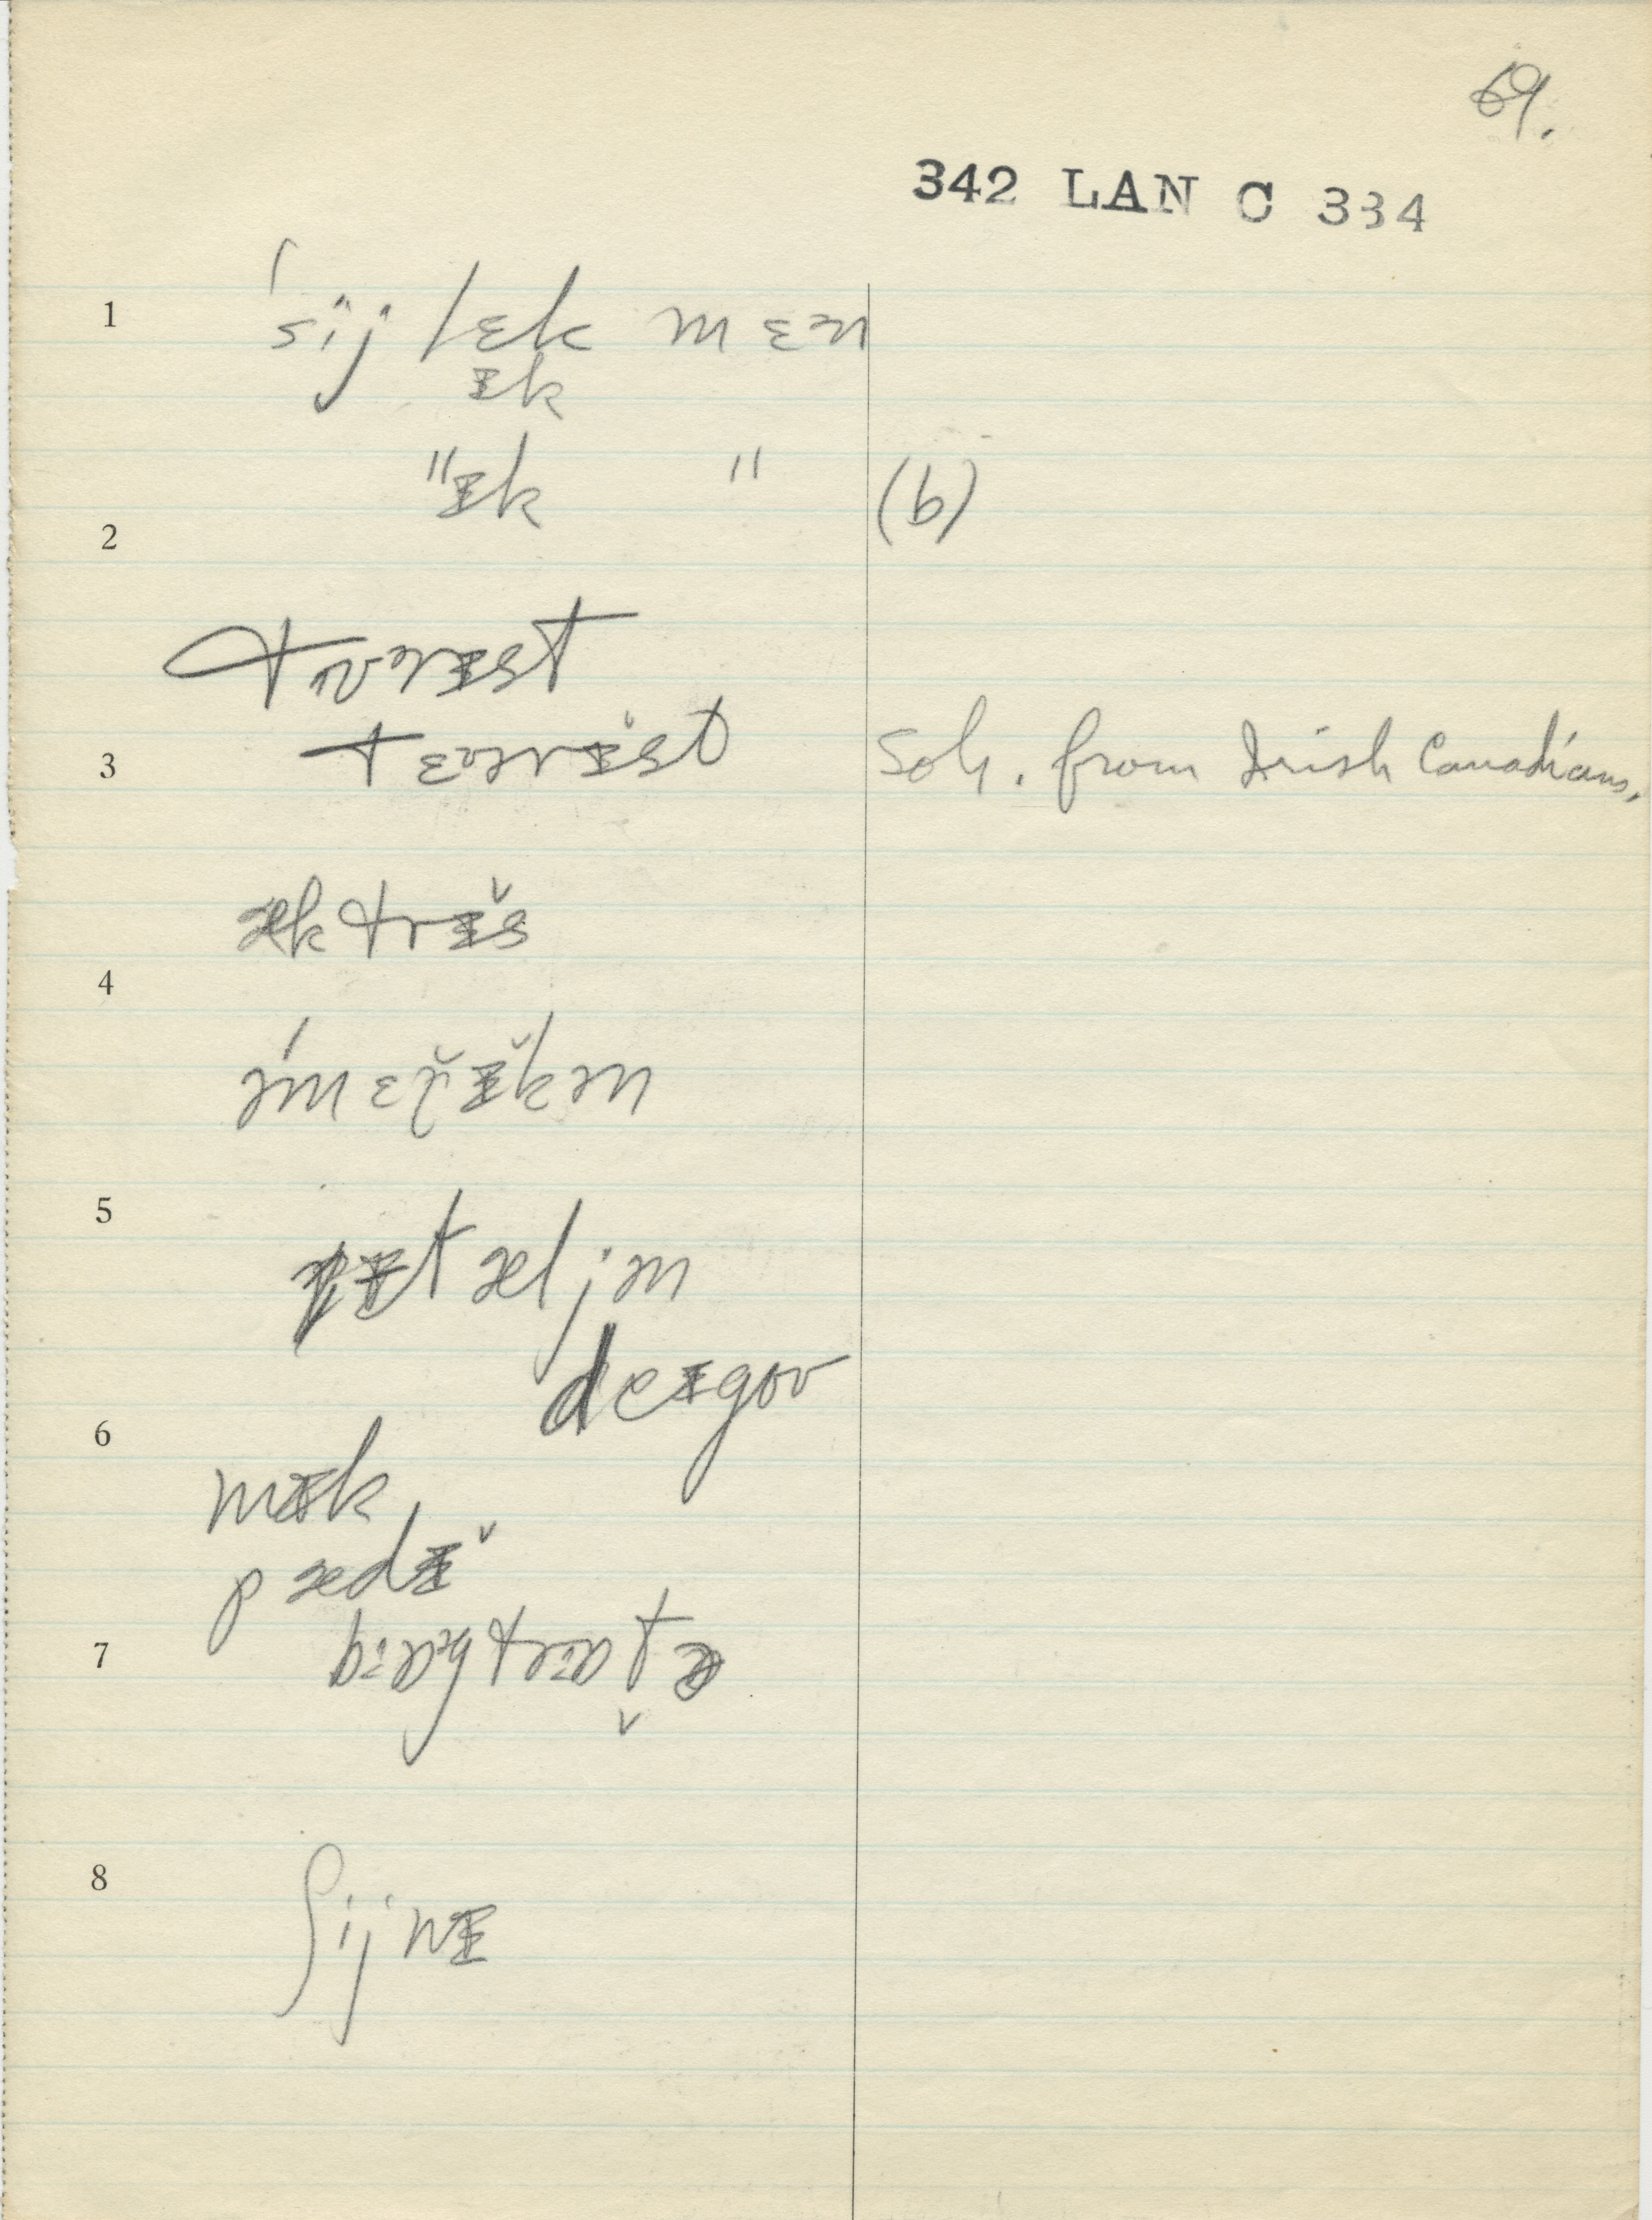 69.
342 LAN C 334
1 ˈsij lɛk mɛən
ɪk
2 " ɪk " (b)
tʊərɪst
3 tɛʊərɪ̆st Sol. from Irish Canadians.
æktrɪ̆s
4
əˈmɛr̆ɪ̆kən
5
ɪtæljən
deɪgoʊ
6
mɪk
pædɪ̆
7
8
ʃijnɪ